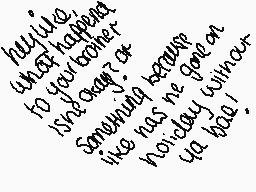 hey luke,
what happend
to your brother
is he okay? or
something because
like has he gone on
holiday without
ya bae!